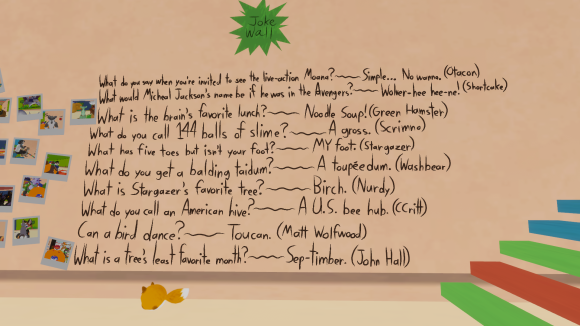 Joke
Wall
What do you say when you're invited to see the live-action Moana? Simple... No wanna. (Otacon)
What would Micheal Jackson's name be if he was in the Avengers? Wolver-hee hee-ne! (Shortcake)
What is the brain's favorite lunch? Noodle Soup! (Green Hamster)
What do you call 144 balls of slime? A gross. (Scrimno)
What has five toes but isn't your foot? MY foot. (Stargazer)
What do you get a balding taidum? A toupéedum. (Washbear)
What is Stargazer's favorite tree? Birch. (Nurdy)
What do you call an American hive? A U.S. bee hub. (CCritt)
Can a bird dance? Toucan. (Matt Wolfwood)
What is a tree's least favorite month? Sep-timber. (John Hall)